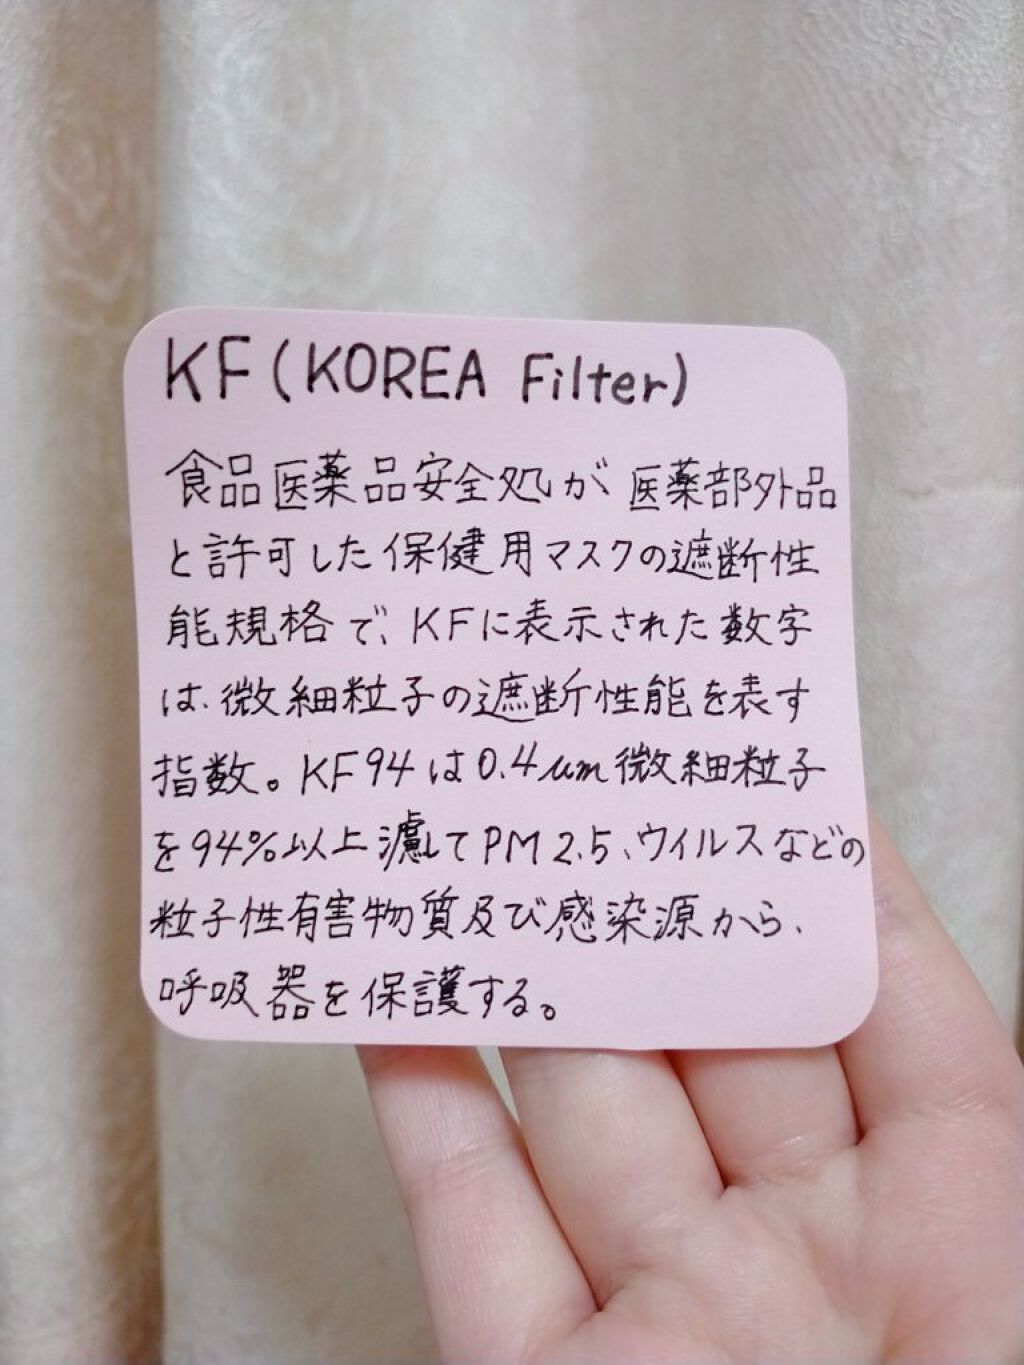 KF(KOREA Filter)
食品医薬品安全処が医薬部外品
と許可した保健用マスクの遮断性
能規格で、KFに表示された数字
は、微細粒子の遮断性能を表す
指数。KF94は0.4μm微細粒子
を94%以上濾してPM2.5、ウイルスなどの
粒子性有害物質及び感染源から、
呼吸器を保護する。